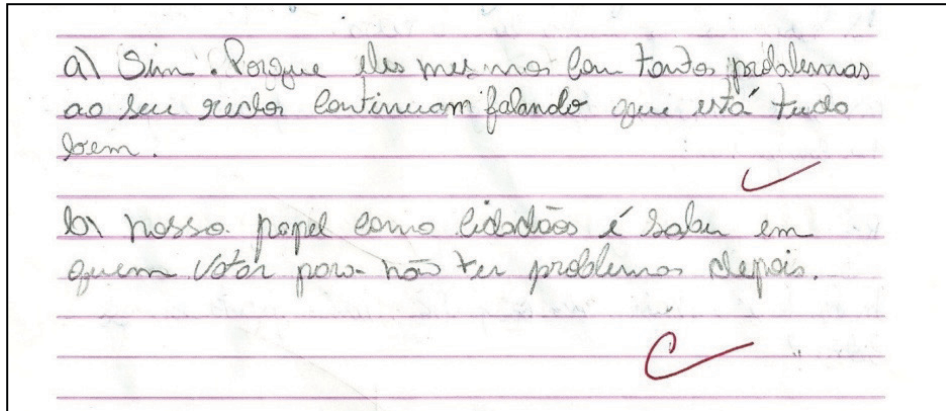 a) Sim. Porque eles mesmos com tantos problemas
ao seu redor continuam falando que está tudo
bem.
b) nosso papel como cidadãos é saber em
quem votar para não ter problemas depois.
C